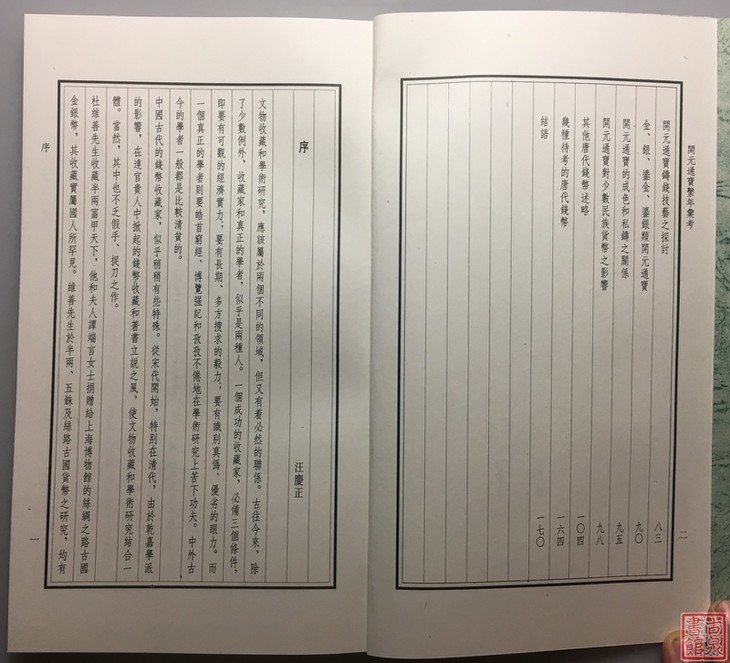 開元通寶繫年彙考
二
開元通寶鑄錢技藝之探討 八三
金、銀、鎏金、鎏銀類開元通寶 九〇
開元通寶的成色和私鑄之關係 九五
開元通寶對少數民族貨幣之影響 九八
其他唐代錢幣述略 一〇四
幾種待考的唐代錢幣 一六四
結語 一七〇
序
汪慶正
文物收藏和學術研究，應該屬於兩個不同的領域，但又有着必然的聯係。古往今來，除
了少數例外，收藏家和真正的學者，似乎是兩種人。一個成功的收藏家，必備三個條件，
即要有可觀的經濟實力；要有長期、多方搜求的毅力；要有識別真僞、優劣的眼力。而
一個真正的學者則要皓首窮經、博覽强記和孜孜不倦地在學術研究上苦下功夫。中外古
今的學者一般都是比較清貧的。
中國古代的錢幣收藏家，似乎稍稍有些特殊。從宋代開始，特別在清代，由於乾嘉學派
的影響，在達官貴人中掀起的錢幣收藏和著書立説之風，使文物收藏和學術研究結合一
體。當然，其中也不乏假手、捉刀之作。
杜維善先生收藏半兩富甲天下，他和夫人譚端言女士捐贈給上海博物館的絲綢之路古國
金銀幣，其收藏實屬國人所罕見。維善先生於半兩、五銖及絲路古國貨幣之研究，均有
序
一
尚泉書館